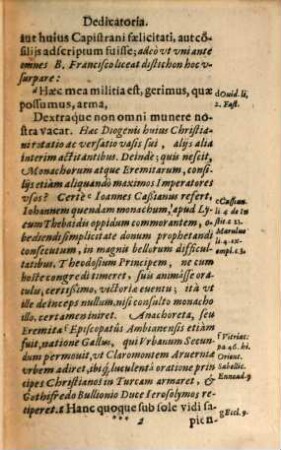 Dedicatoria.
aut huius Capistrani fælicitati, aut cõ-
silijs adscriptum fuisse; adeò vt vni ante
omnes B. Francisco liceat distichon hoc v-
surpare:
d Hæc mea militia est, gerimus, quæ
possumus, arma,
d Ouid. li.
2. Fast.
Dextraque non omni munere no-
stra vacat. Hæc Diogenis huius Christia-
ni ratatio ac versatio vasis sui, alijs alia
interim actitantibus. Deinde; quis nescit,
Monachorum atque Eremitarum, consi-
lijs etiam aliquando maximos Imperatores
vsos? Certè e Ioannes Cassianus refert,
Iohannem quendam monachum, apud Ly-
cum Thebaidis oppidum commorantem, o-
bediendi simplicitate donum prophetandi
consecutum, in magnis bellorum difficul-
tatibus, Theodosium Principem, ne cum
hoste congredi timeret, suis animisse ora-
culo, certissimo, victoria euentu; ità vt
ille deinceps nullum, nisi consulto monacho
illo, certamen iniret. Anachoreta, seu
Eremita f Episcopatus Ambianensis etiàm
fuit, natione Gallus, qui Vrbanum Secun-
dum permouit, vt Claromontem Aruernia
vrbem adiret, ibiq́; luculenta oratione prin-
cipes Christianos in Turcam armaret, &
Gothifredo Bullionio Duce Ierosolymos re-
ciperet. g Hanc quoque sub sole vidi sa-
e Cassian.
li 4 de in
stit c 23.
Marulus
li. 4. ex-
empl. c 3.
f Vitriac.
pa 46. hi.
Orient.
Sabellic.
Ennead. 9
g Eccl. 9.
pien-